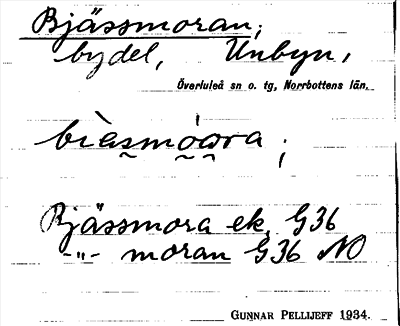 Bjässmoran;
bydel, Unbyn,
Överluleå sn o. tg, Norrbottens län.
Bjässmora ek. G36
-"- moran G36 NO
GUNNAR PELLIJEFF 1934.